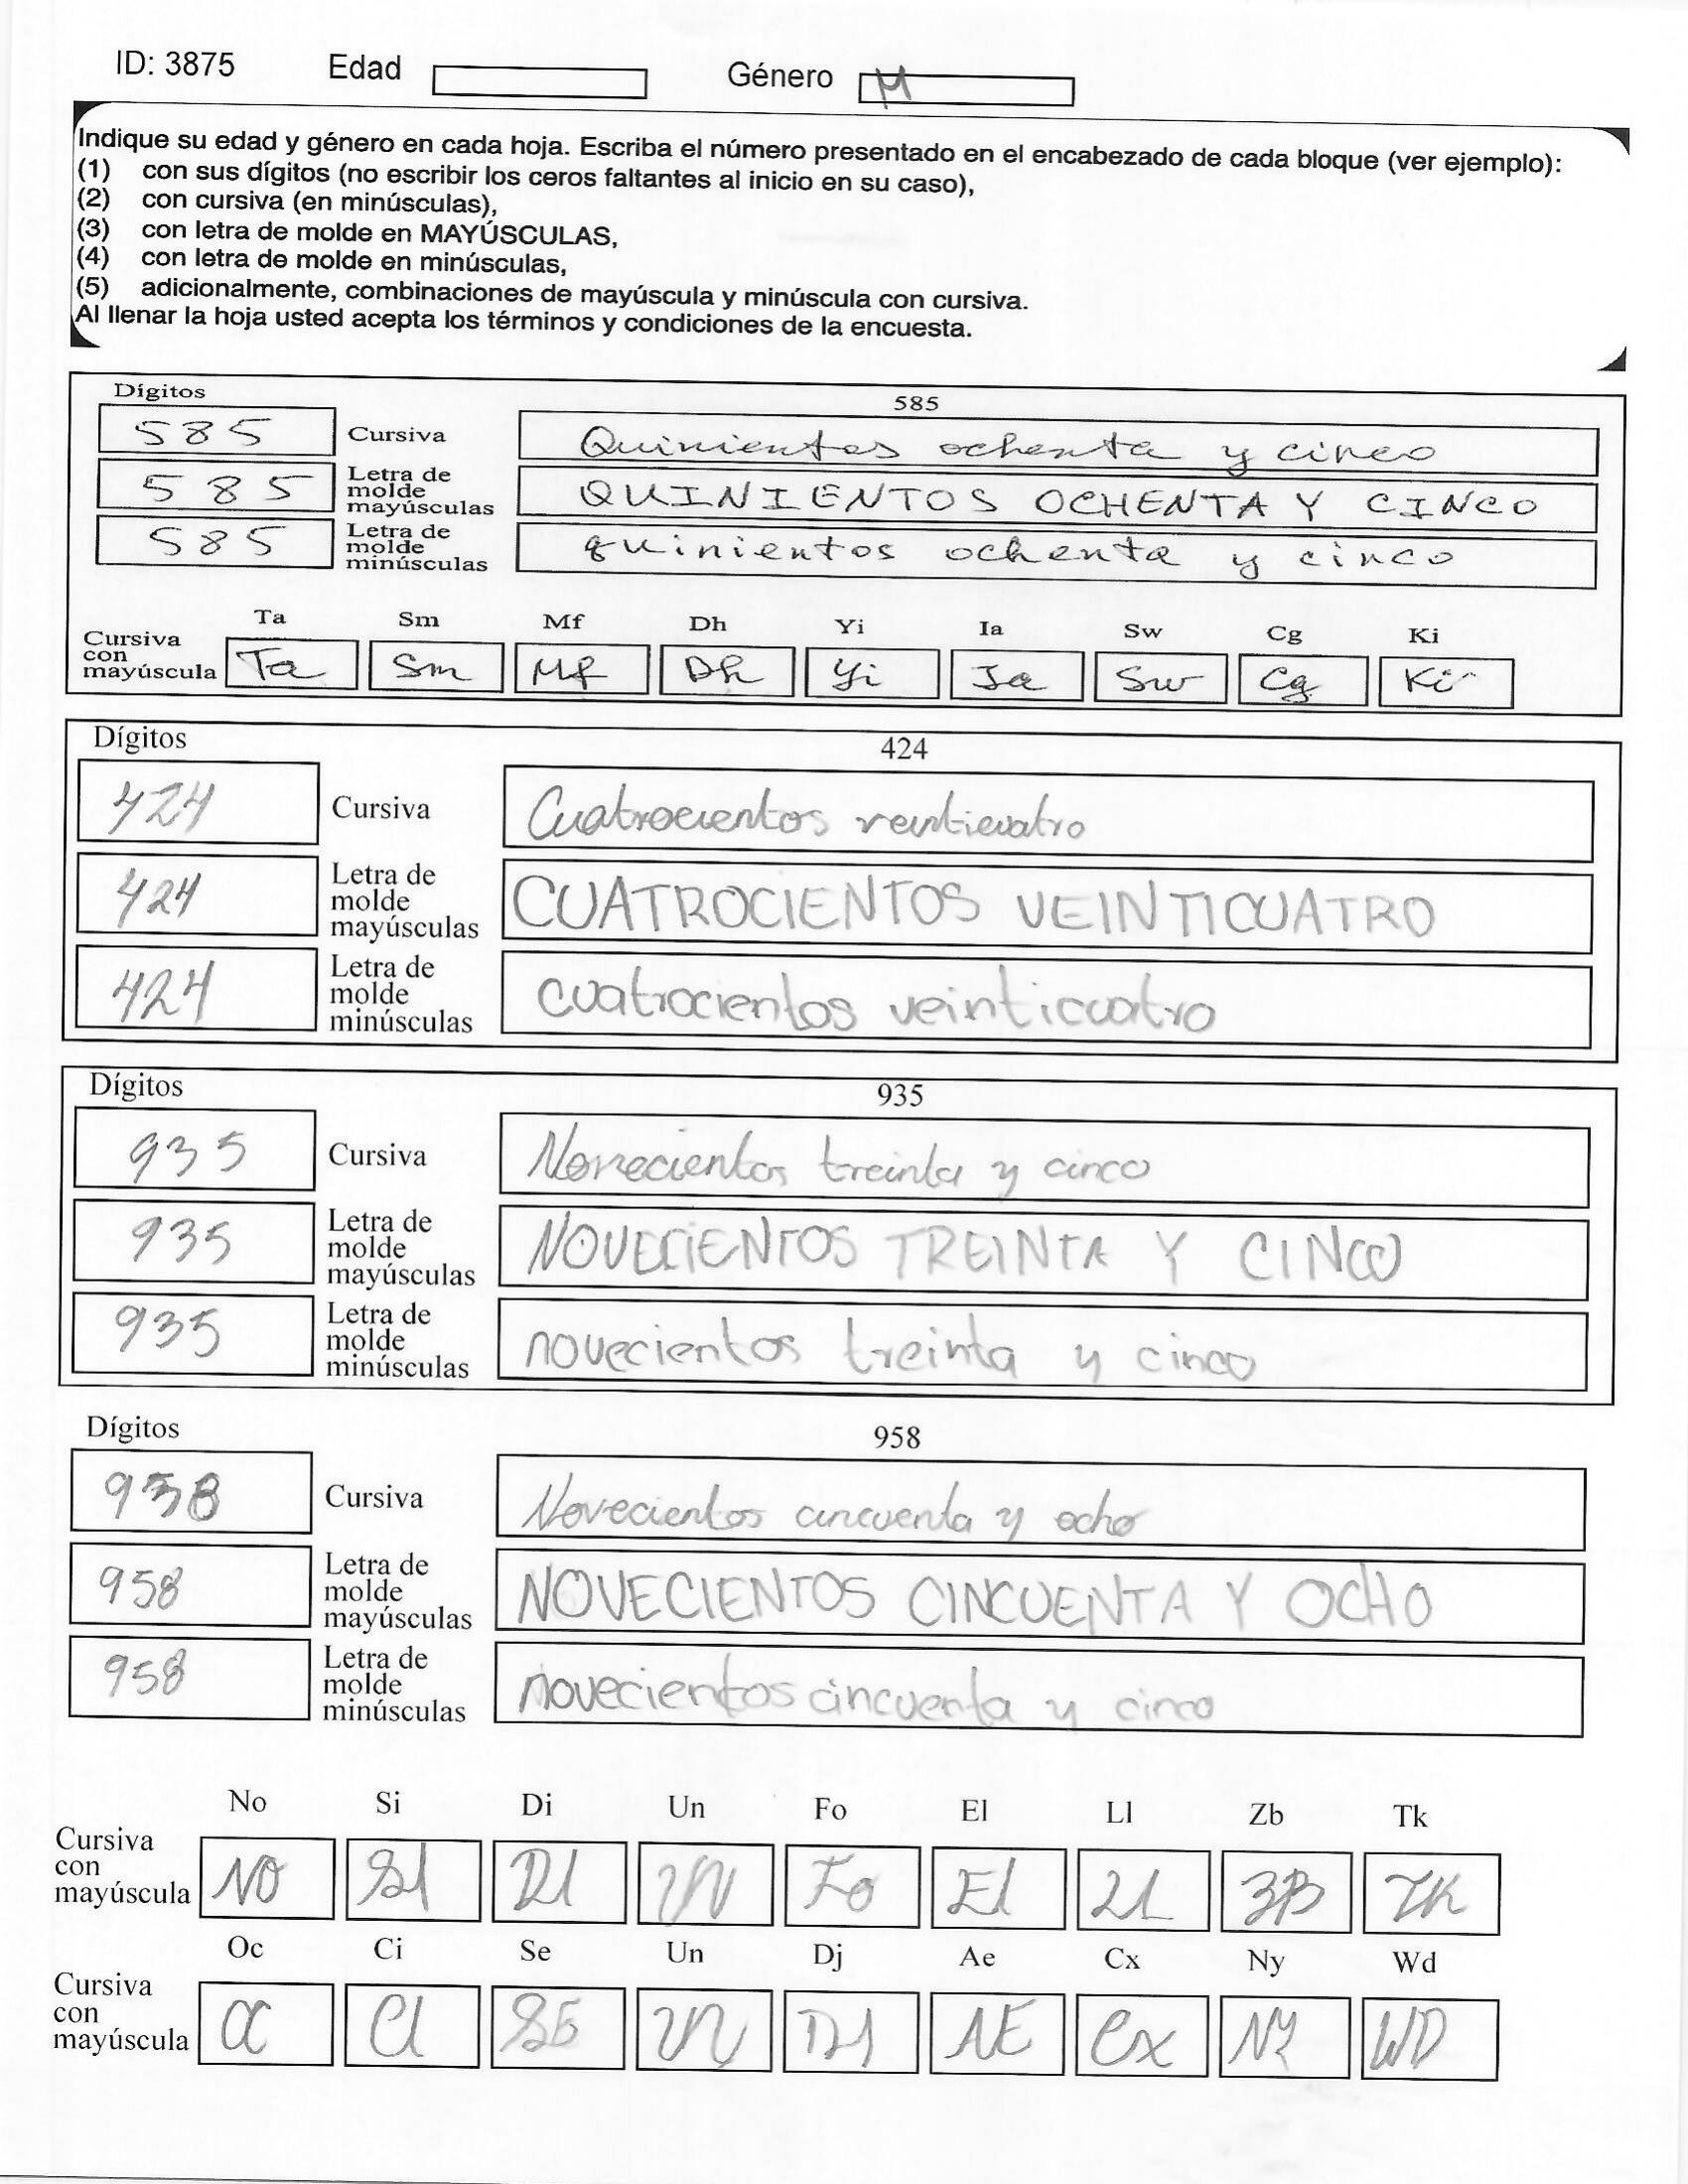 ID: 3875 Edad Género M
Indique su edad y género en cada hoja. Escriba el número presentado en el encabezado de cada bloque (ver ejemplo):
(1) con sus dígitos (no escribir los ceros faltantes al inicio en su caso),
(2) con cursiva (en minúsculas),
(3) con letra de molde en MAYÚSCULAS,
(4) con letra de molde en minúsculas,
(5) adicionalmente, combinaciones de mayúscula y minúscula con cursiva.
Al llenar la hoja usted acepta los términos y condiciones de la encuesta.
Dígitos 585
585 Cursiva Quinientos ochenta y cinco
585 Letra de molde mayúsculas QUINIENTOS OCHENTA Y CINCO
585 Letra de molde minúsculas quinientos ochenta y cinco
Ta Sm Mf Dh Yi Ia Sw Cg Ki
Cursiva con mayúscula Ta Sm Mf Dh Yi Ia Sw Cg Ki
Dígitos 424
424 Cursiva Cuatrocientos veinticuatro
424 Letra de molde mayúsculas CUATROCIENTOS VEINTICUATRO
424 Letra de molde minúsculas cuatrocientos veinticuatro
Dígitos 935
935 Cursiva Novecientos treinta y cinco
935 Letra de molde mayúsculas NOVECIENTOS TREINTA Y CINCO
935 Letra de molde minúsculas novecientos treinta y cinco
Dígitos 958
958 Cursiva Novecientos cincuenta y ocho
958 Letra de molde mayúsculas NOVECIENTOS CINCUENTA Y OCHO
958 Letra de molde minúsculas novecientos cincuenta y cinco
No Si Di Un Fo El Ll Zb Tk
Cursiva con mayúscula NO SI DI UN Fo El LL ZB TK
Oc Ci Se Un Dj Ae Cx Ny Wd
Cursiva con mayúscula OC CI SE UN DJ AE Cx NY WD